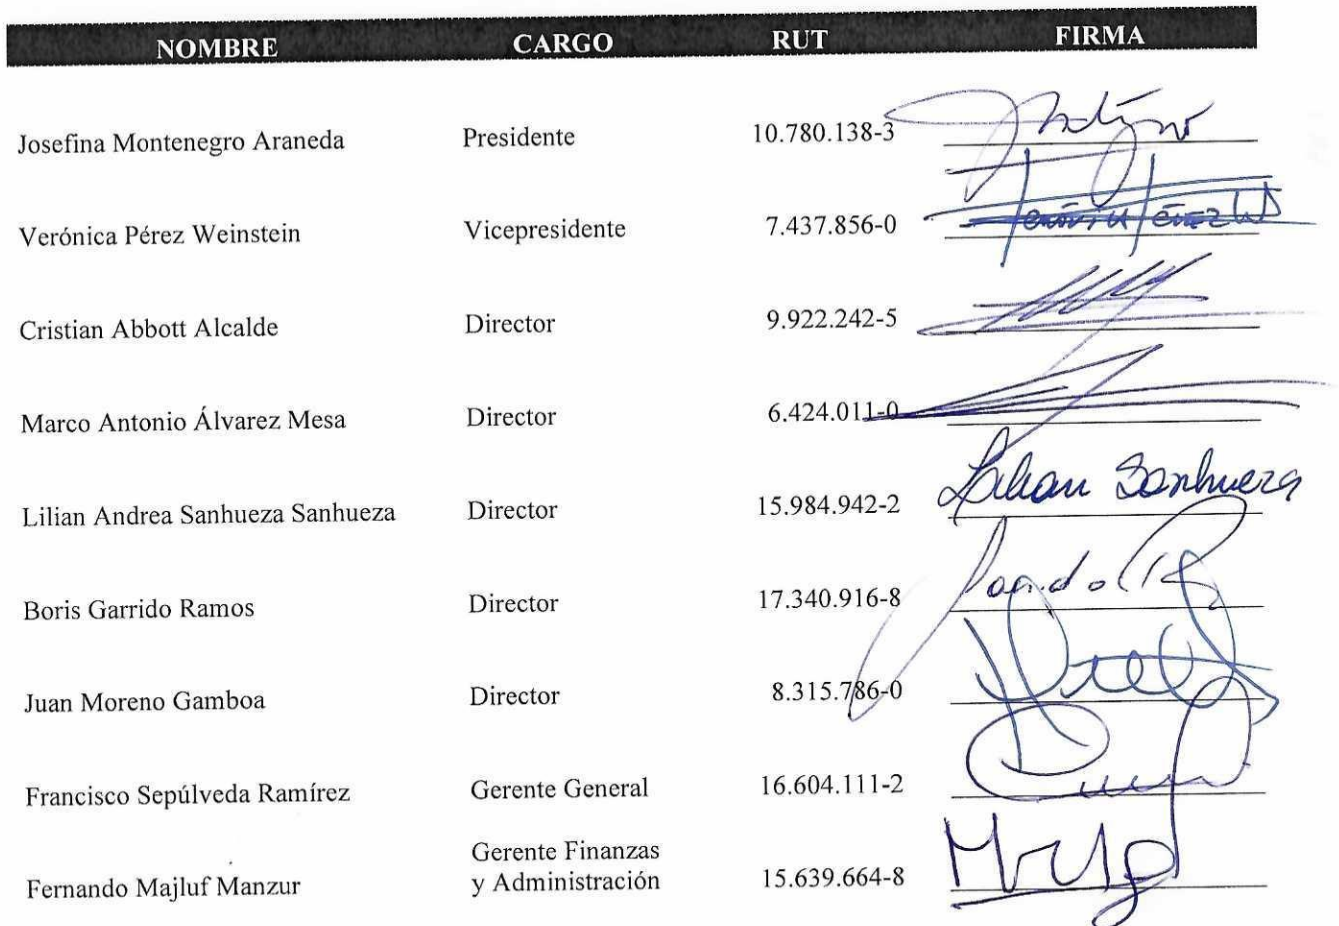 NOMBRE CARGO RUT FIRMA
Josefina Montenegro Araneda Presidente 10.780.138-3
Verónica Pérez Weinstein Vicepresidente 7.437.856-0
Cristian Abbott Alcalde Director 9.922.242-5
Marco Antonio Álvarez Mesa Director 6.424.011-0
Lilian Andrea Sanhueza Sanhueza Director 15.984.942-2 Lilian Sanhueza
Boris Garrido Ramos Director 17.340.916-8
Juan Moreno Gamboa Director 8.315.786-0
Francisco Sepúlveda Ramírez Gerente General 16.604.111-2
Gerente Finanzas
Fernando Majluf Manzur y Administración 15.639.664-8